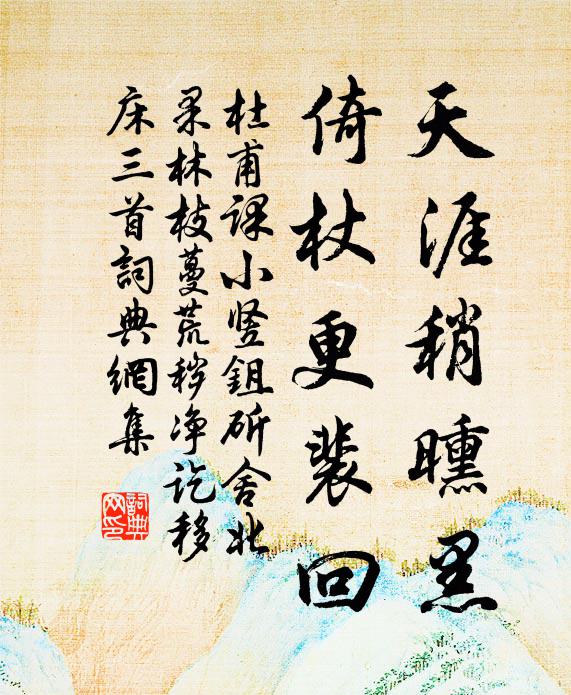 天涯稍曛黑
倚杖更裴回
杜甫課小豎鉏斫舍北
果林枝蔓荒穢净訖移
床三首詞典網集
詞典
网印